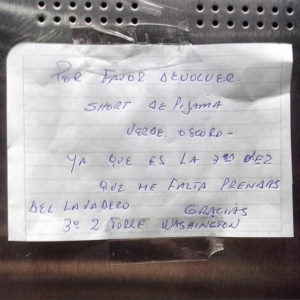 POR FAVOR DEVOLVER
SHORT DE PIJAMA
VERDE OSCURO-
YA QUE ES LA 3ra VEZ
QUE ME FALTA PRENDAS
DEL LAVADERO GRACIAS
3º 2 TORRE WASHINGTON